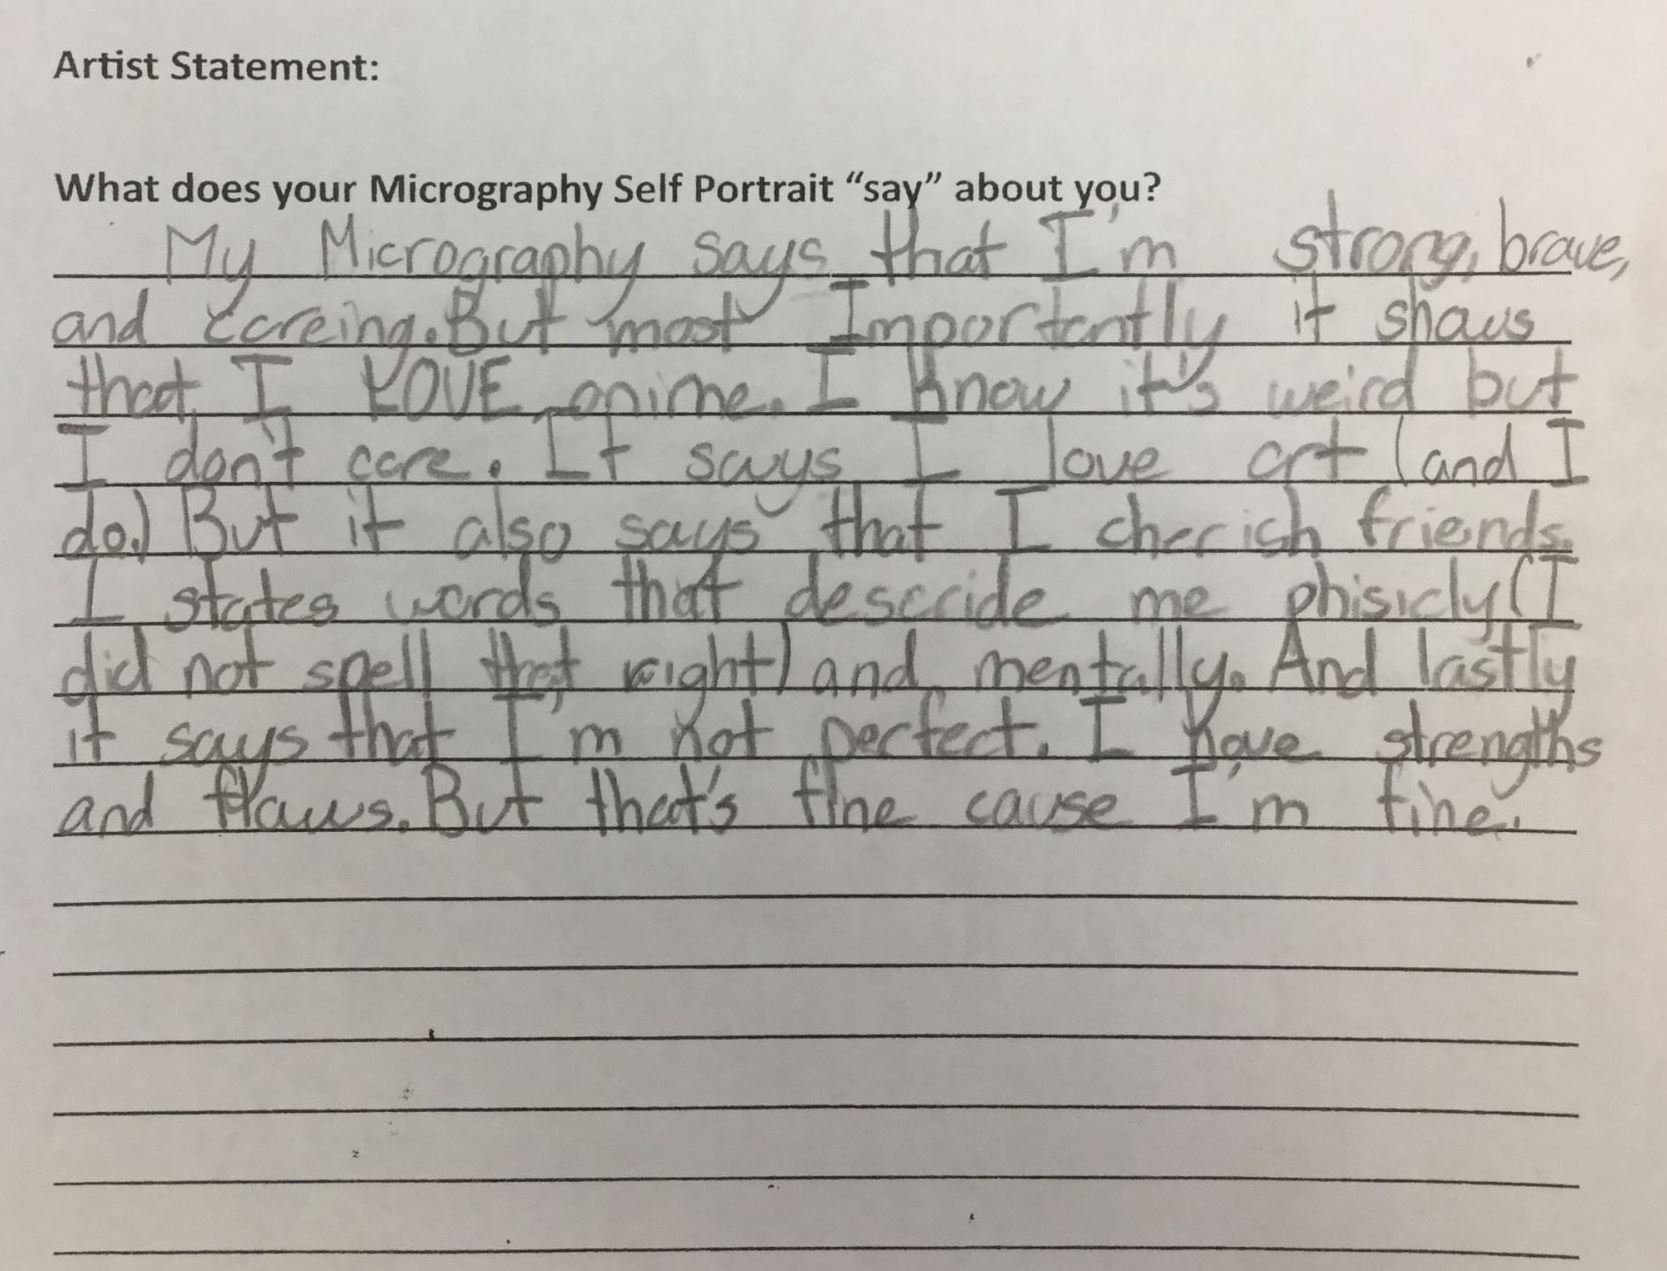 Artist Statement:
What does your Micrography Self Portrait “say” about you?
My Micrography says that I'm strong, brave,
and careing. But most Importantly it shows
that I LOVE anime. I know it's weird but
I don't care. It says I love art (and I
do.) But it also says that I cherrich friends.
I states words that descride me phisicly (I
did not spell that right) and mentally. And lastly
it says that I'm not perfect. I have strengths
and flaws. But that's fine cause I'm fine.